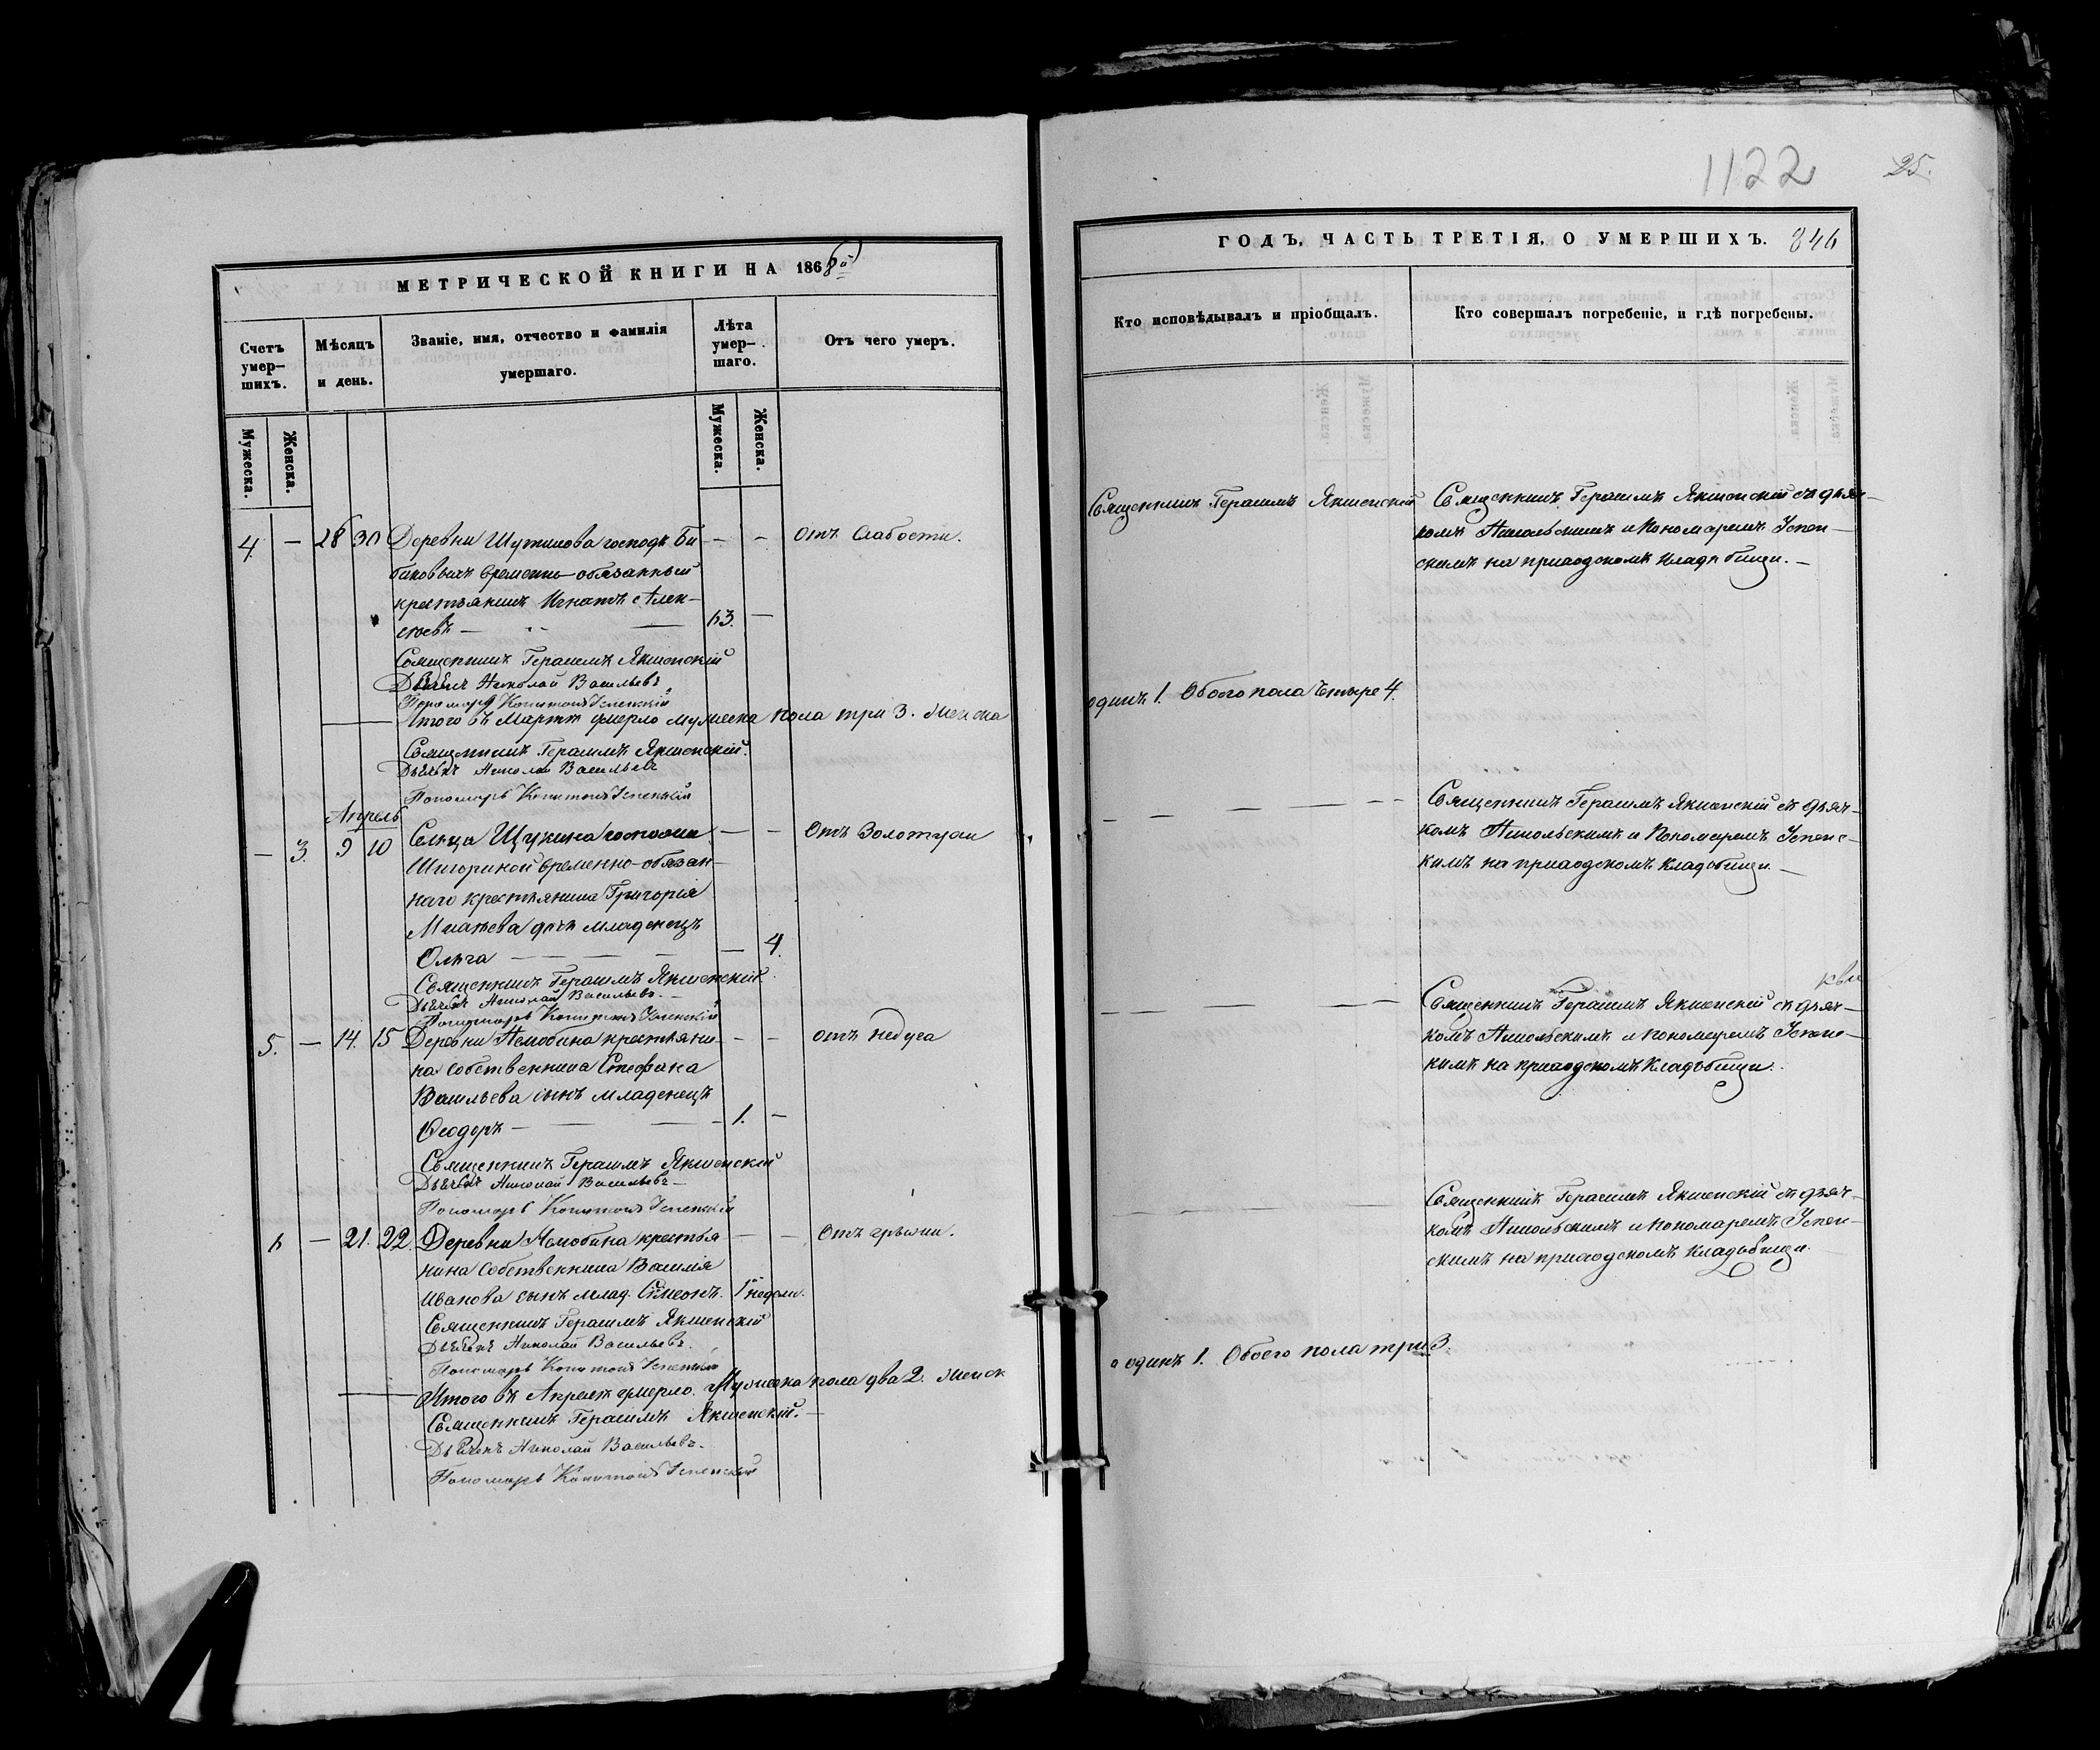 1122
25.
МЕТРИЧЕСКОЙ КНИГИ НА 1868й
Счетъ умер-шихъ.
Мѣсяцъ и день.
Званіе, имя, отчество и фамилія умершаго.
Лѣта умер-шаго.
Отъ чего умеръ.
Мужеска.
Женска.
Мужеска.
Женска.
4. — 28 30 Деревни Шутилова господъ Би- — — Отъ слабости.
биковыхъ временно-обязанный
крестьянинъ Игнатъ Алек-
сѣевъ — 63. —
Священникъ Герасимъ Якшенскій
Дьячекъ Николай Васильевъ
Пономарь Капитонъ Успенскій
Итого въ Мартѣ умерло мужеска пола три 3. женска
Священникъ Герасимъ Якшенскій.
Дьячекъ Николай Васильевъ
Пономарь Капитонъ Успенскій
Апрель
— 3. 9 10 Сельца Щукина госпожи — — Отъ золотухи
временно-обязан-
наго крестьянина Григорія
дочь младенецъ
Ольга — — 4.
Священникъ Герасимъ Якшенскій.
Дьячекъ Николай Васильевъ.
Пономарь Капитонъ Успенскій
5. — 14. 15 Деревни крестьяни- — — отъ недуга
на собственника Стефана
Васильева сынъ младенецъ
Ѳеодоръ — 1. —
Священникъ Герасимъ Якшенскій
Дьячекъ Николай Васильевъ
Пономарь Капитонъ Успенскій
6 — 21. 22. Деревни крестья- — — Отъ грыжи.
нина собственника Василія
Иванова сынъ млад. Симеонъ. 1й недели.
Священникъ Герасимъ Якшенскій
Дьячекъ Николай Васильевъ.
Пономарь Капитонъ Успенскій
Итого въ Апрелѣ умерло. Мужеска пола два 2. женск
Священникъ Герасимъ Якшенскій.
Дьячекъ Николай Васильевъ.
Пономарь Капитонъ Успенскій
ГОДЪ, ЧАСТЬ ТРЕТІЯ, О УМЕРШИХЪ. 846
Кто исповѣдывалъ и пріобщалъ.
Кто совершалъ погребеніе, и гдѣ погребены.
Священникъ Герасимъ Якшенскій
Священникъ Герасимъ Якшенскій съ дьяч-
комъ Никольскимъ и Пономаремъ Успен-
скимъ на приходскомъ кладбищи. —
одинъ 1. Обоего пола четыре 4.
Священникъ Герасимъ Якшенскій съ дьяч-
комъ Никольскимъ и Пономаремъ Успенс-
кимъ на приходскомъ кладбищи. —
Священникъ Герасимъ Якшенскій съ дьяч-
комъ Никольскимъ и пономаремъ Успенс-
кимъ на приходскомъ кладбищи.
Священникъ Герасимъ Якшенскій съ дьяч-
комъ Никольскимъ и пономаремъ Успен-
скимъ на приходскомъ кладбищи.
а одинъ 1. Обоего пола три 3.